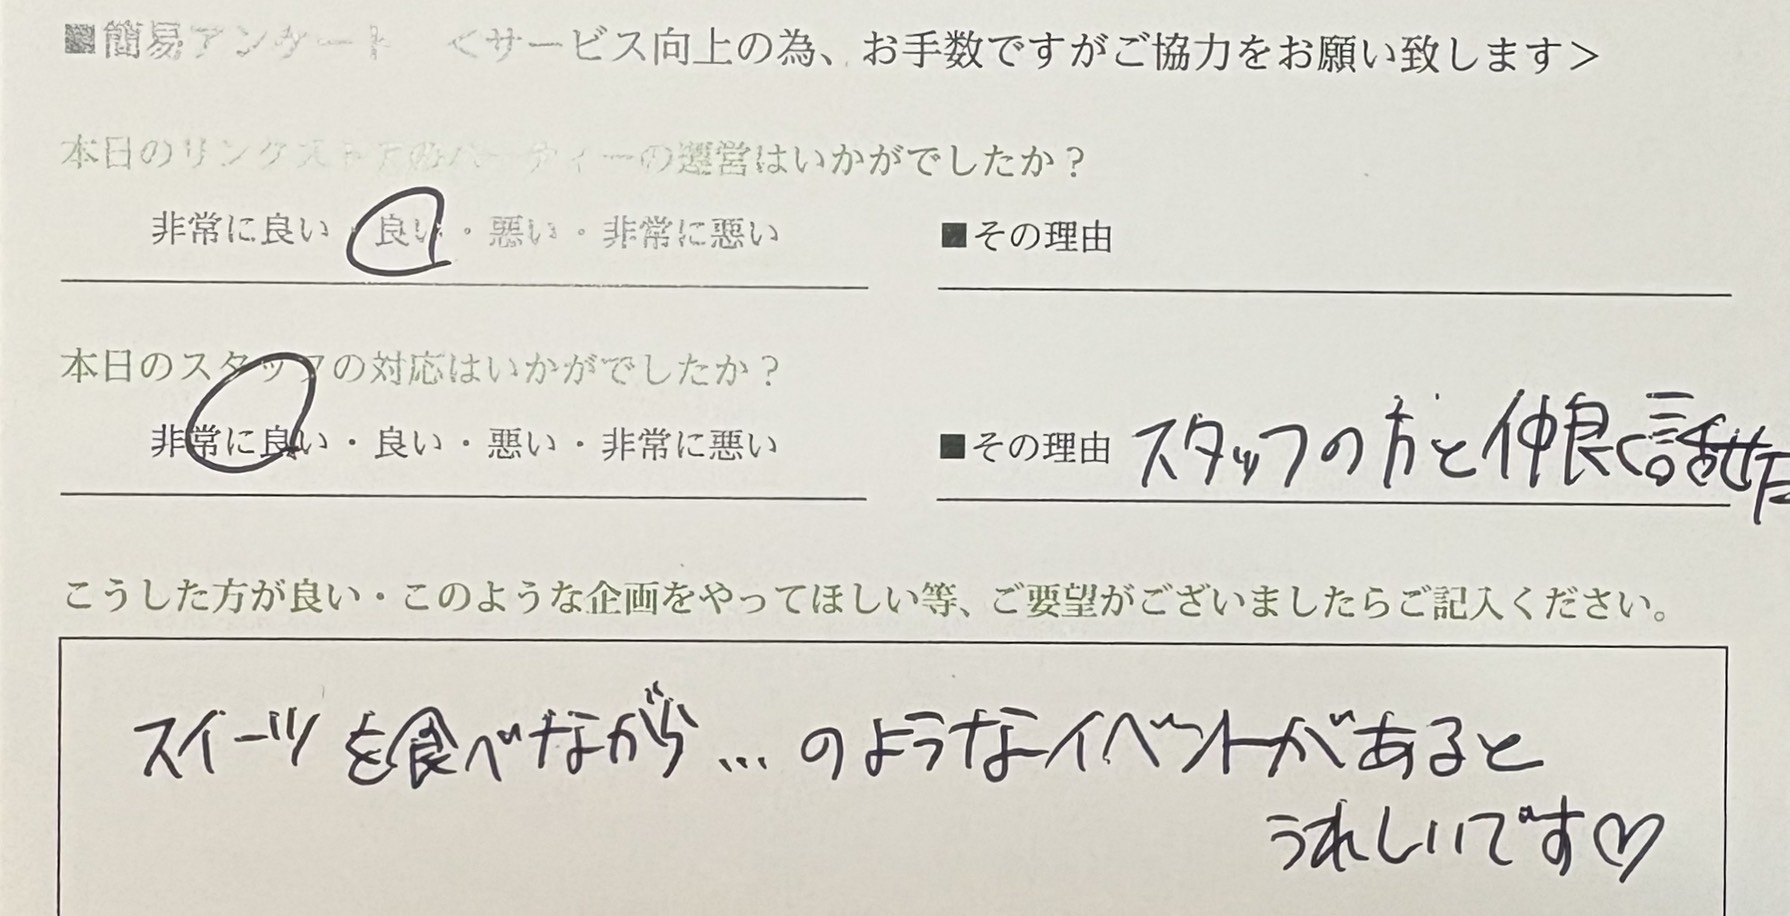 ■簡易アンケート <サービス向上の為、お手数ですがご協力をお願い致します>
本日のリンクストアのパーティーの運営はいかがでしたか？
非常に良い・良い・悪い・非常に悪い ■その理由
本日のスタッフの対応はいかがでしたか？
非常に良い・良い・悪い・非常に悪い ■その理由 スタッフの方と仲良く話せた
こうした方が良い・このような企画をやってほしい等、ご要望がございましたらご記入ください。
スイーツを食べながら…のようなイベントがあると
うれしいです♡